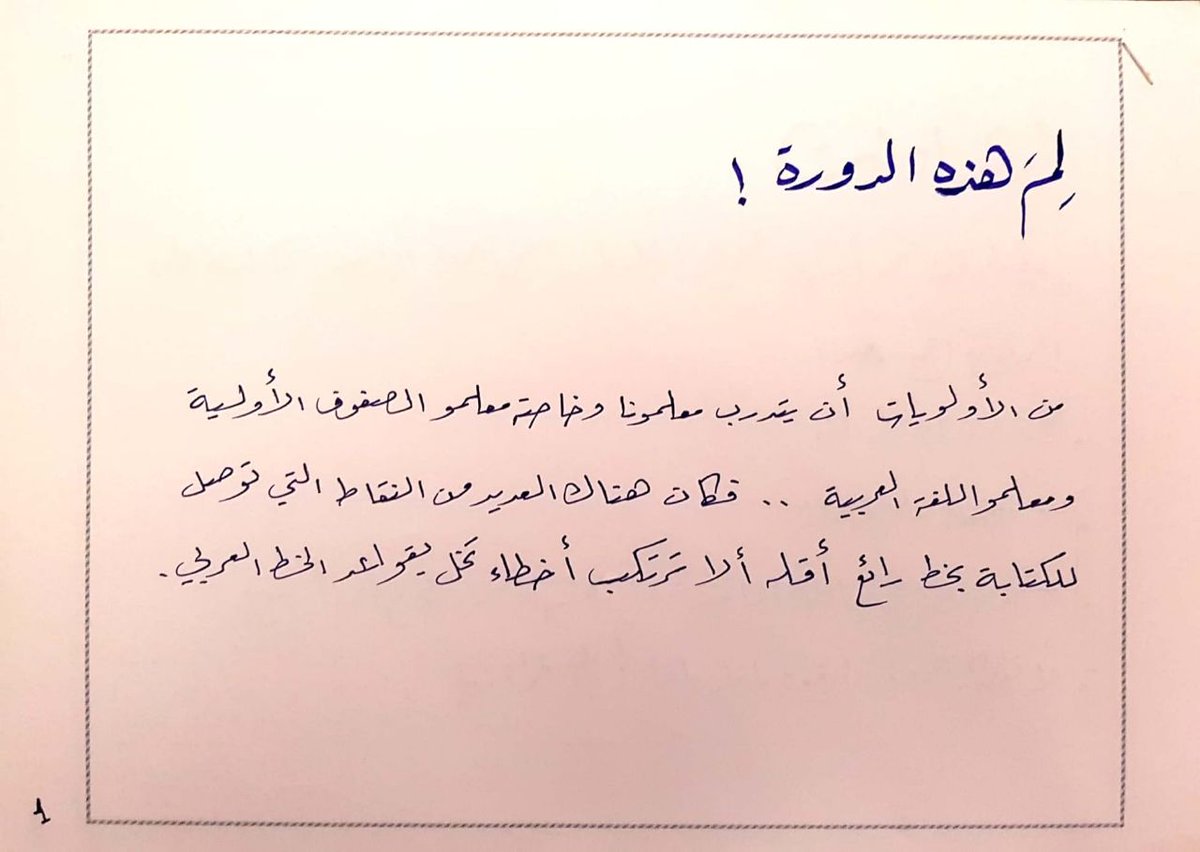 لِمَ هذه الدورة !
من الأولويات أن يتدرب معلمونا وخاصة معلمو الصفوف الأولية
ومعلمو اللغة العربية .. فكان هناك العديد من النقاط التي توصل
للكتابة بخط رائع أقله ألا ترتكب أخطاء تخل بقواعد الخط العربي .
1